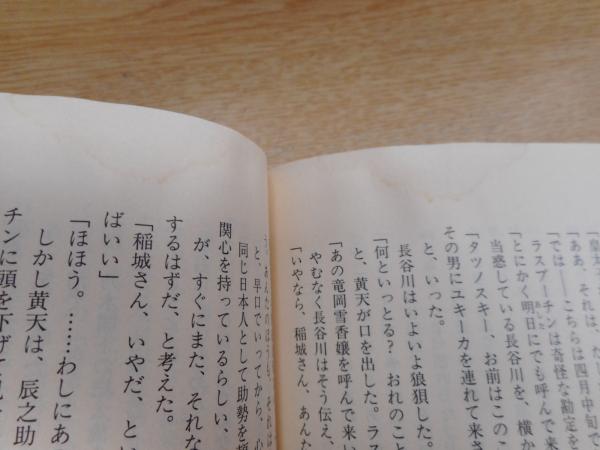 「皇太
「ああ、それは、た
「では――こちらは四月中旬で
ラスプーチンは奇怪な勘定を
「とにかく明日にでも呼んで来
当惑している長谷川を、横か
「タツノスキー、お前はこのこ
その男にユキーカを連れて来さ
と、いった。
長谷川はいよいよ狼狽した。
「何といっとる? おれのこと
と、黄天が口を出した。ラス
「あの竜岡雪香嬢を呼んで来い
やむなく長谷川はそう伝え、
「いやなら、稲城さん、あんた
う、あんたのほうも、それは
と、早口でいってから、心
同じ日本人として助勢を
関心を持っているらしい、
が、すぐにまた、それな
するはずだ、と考えた。
「稲城さん、いやだ、とい
ばいい」
「ほほう。……わしにあ
しかし黄天は、辰之助
チンに頭を下げて